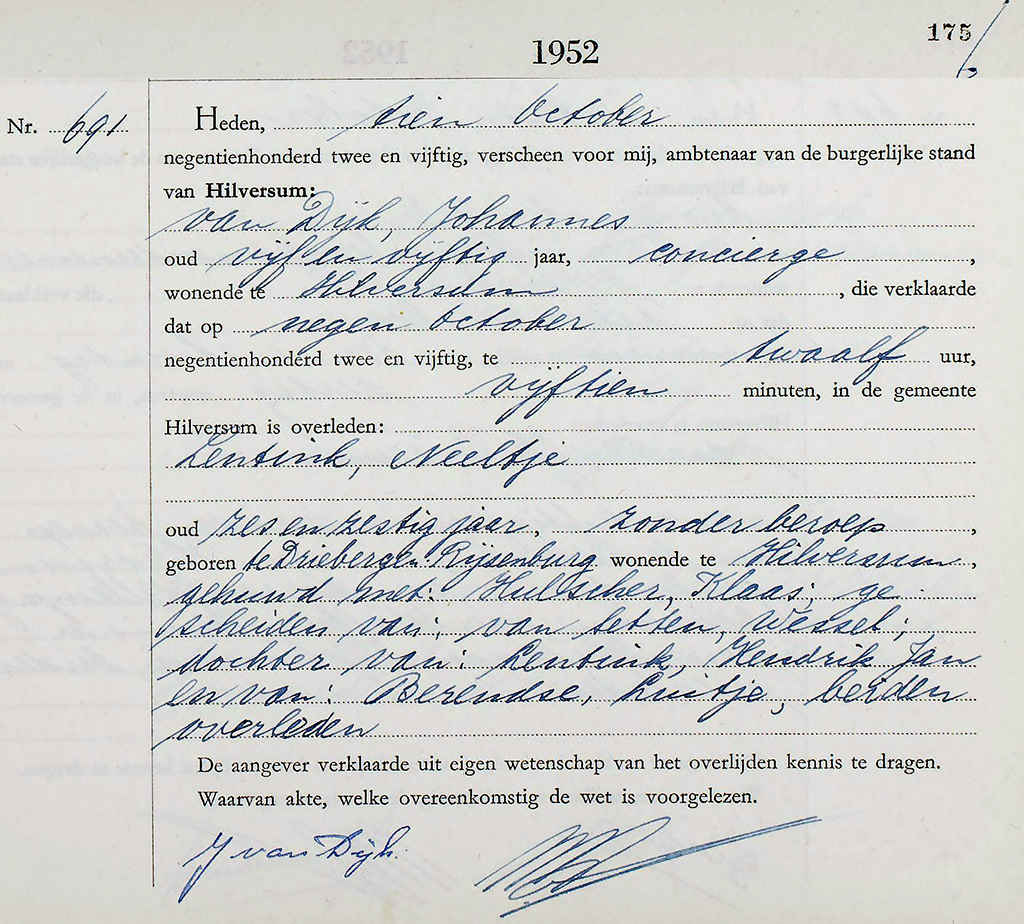 175
1952
Nr. 691
Heden, tien October
negentienhonderd twee en vijftig, verscheen voor mij, ambtenaar van de burgerlijke stand
van Hilversum:
van Dijk, Johannes
oud vijf en vijftig jaar, concierge,
wonende te Hilversum, die verklaarde
dat op negen October
negentienhonderd twee en vijftig, te twaalf uur,
vijftien minuten, in de gemeente
Hilversum is overleden:
Lentink, Neeltje
oud zes en zestig jaar, zonder beroep,
geboren te Driebergen-Rijsenburg wonende te Hilversum,
gehuwd met: Hulscher, Klaas; ge
scheiden van: van Letten, Wessel;
dochter van: Lentink, Hendrik Jan
en van: Berendse, Luitje, beiden
overleden
De aangever verklaarde uit eigen wetenschap van het overlijden kennis te dragen.
Waarvan akte, welke overeenkomstig de wet is voorgelezen.
J van Dijk.